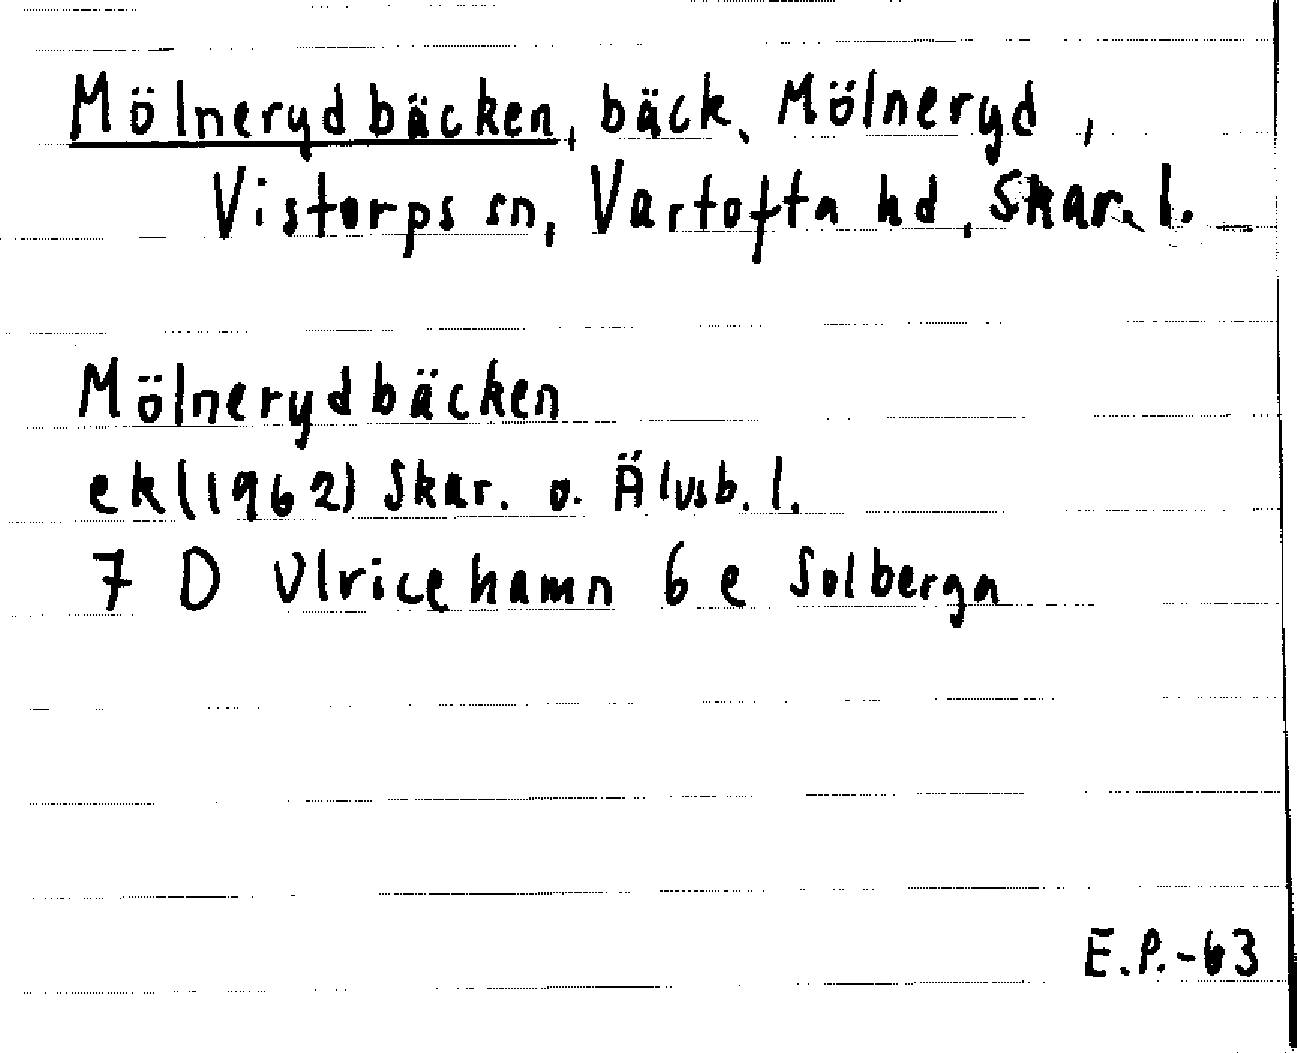 Mölnerydbäcken, bäck, Mölneryd,
Vistorps sn, Vartofta hd, Skar. l.
Mölnerydbäcken
ek (1962) Skar. o. Älvsb. l.
7 D Ulricehamn 6 e Solberga
E.P.-63